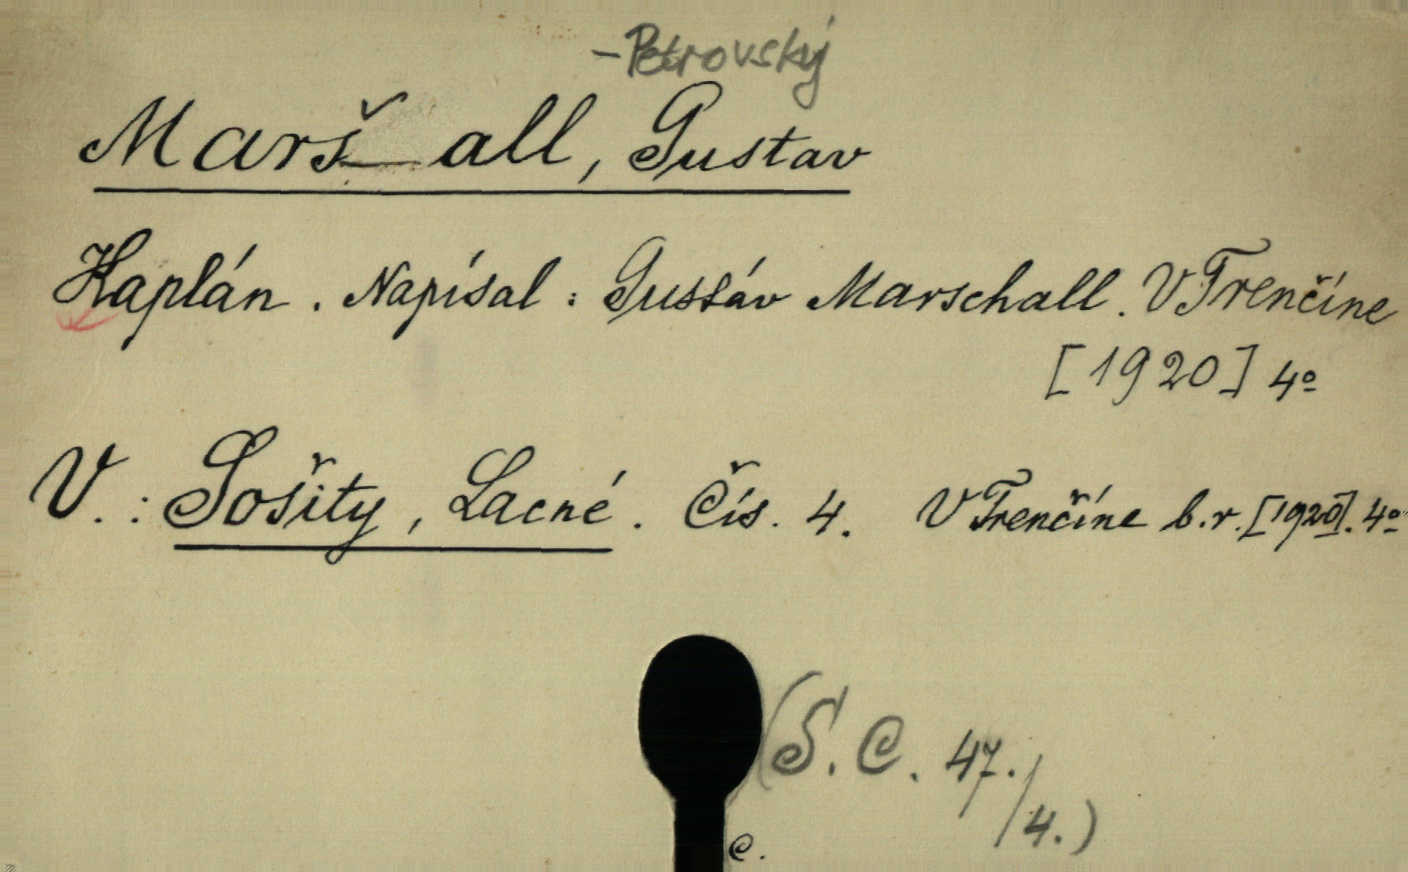 -Petrovský
Marš all, Gustav
Kaplán. Napísal: Gustáv Marschall. V Trenčíne
[1920] 4º
V.: Sošity, Lacné. Čís. 4. V Trenčíne b.r. [1920]. 4º
(S. C. 47./4.)
c.